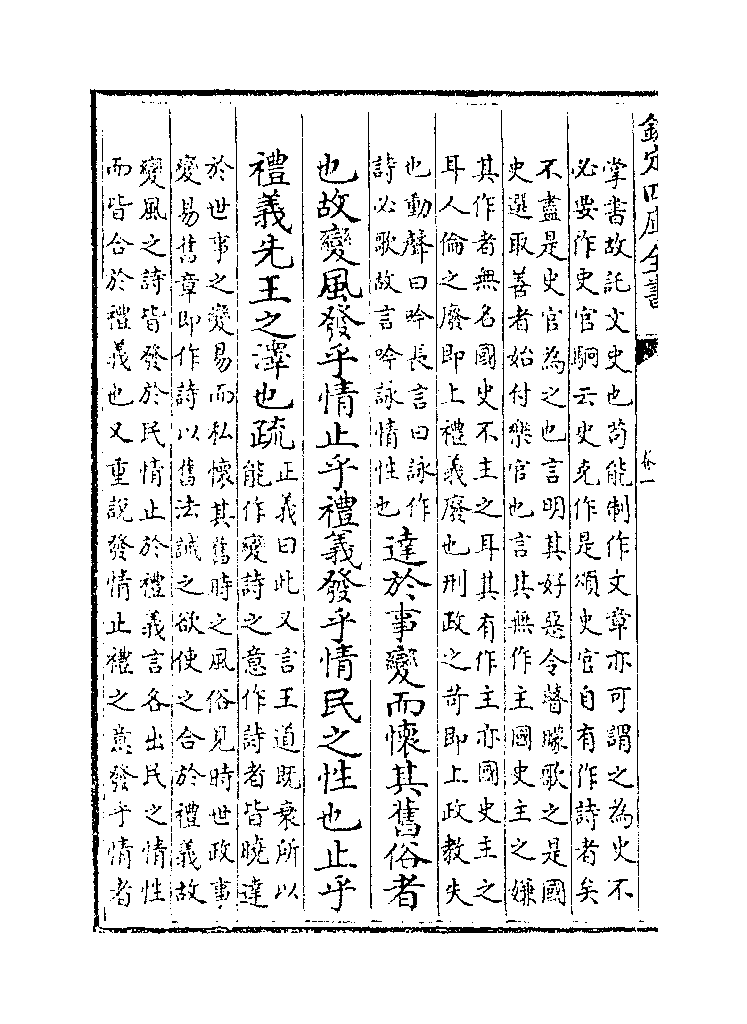 欽定四庫全書
卷一
掌書故託文史也苟能制作文章亦可謂之為史不
必要作史官駉云史克作是頌史官自有作詩者矣
不盡是史官為之也言明其好惡令瞽矇歌之是國
史選取善者始付樂官也言其無作主國史主之嫌
其作者無名國史不主之耳其有作主亦國史主之
耳人倫之廢即上禮義廢也刑政之苛即上政教失
也動聲曰吟長言曰詠作
詩必歌故言吟詠情性也
達於事變而懷其舊俗者
也故變風發乎情止乎禮義發乎情民之性也止乎
禮義先王之澤也疏
正義曰此又言王道既衰所以
能作變詩之意作詩者皆曉達
於世事之變易而私懷其舊時之風俗見時世政事
變易舊章即作詩以舊法誡之欲使之合於禮義故
變風之詩皆發於民情止於禮義言各出民之情性
而皆合於禮義也又重說發情止禮之意發乎情者